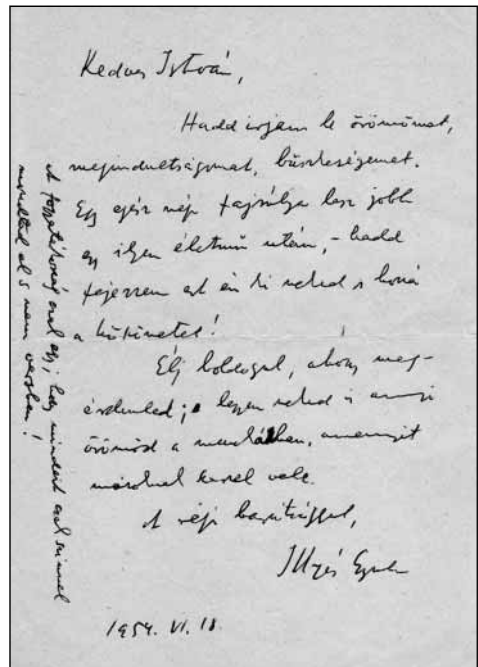 Kedves István,
Hadd írjam le örömömet,
megindultságomat, büszkeségemet.
Egy egész nép fajsúlya lesz jobb
egy ilyen életmű után, – hadd
fejezzem ezt én ki neked s hozzá
a
Élj boldogul, ahogy meg-
érdemled; s legyen neked is annyi
örömöd a munkádban, amennyit
másoknak vele.
A régi barátsággal,
Illyés Gyula
1954. VI. 18.
A ez egy, hogy mindezt
mondtad el s nem versben!